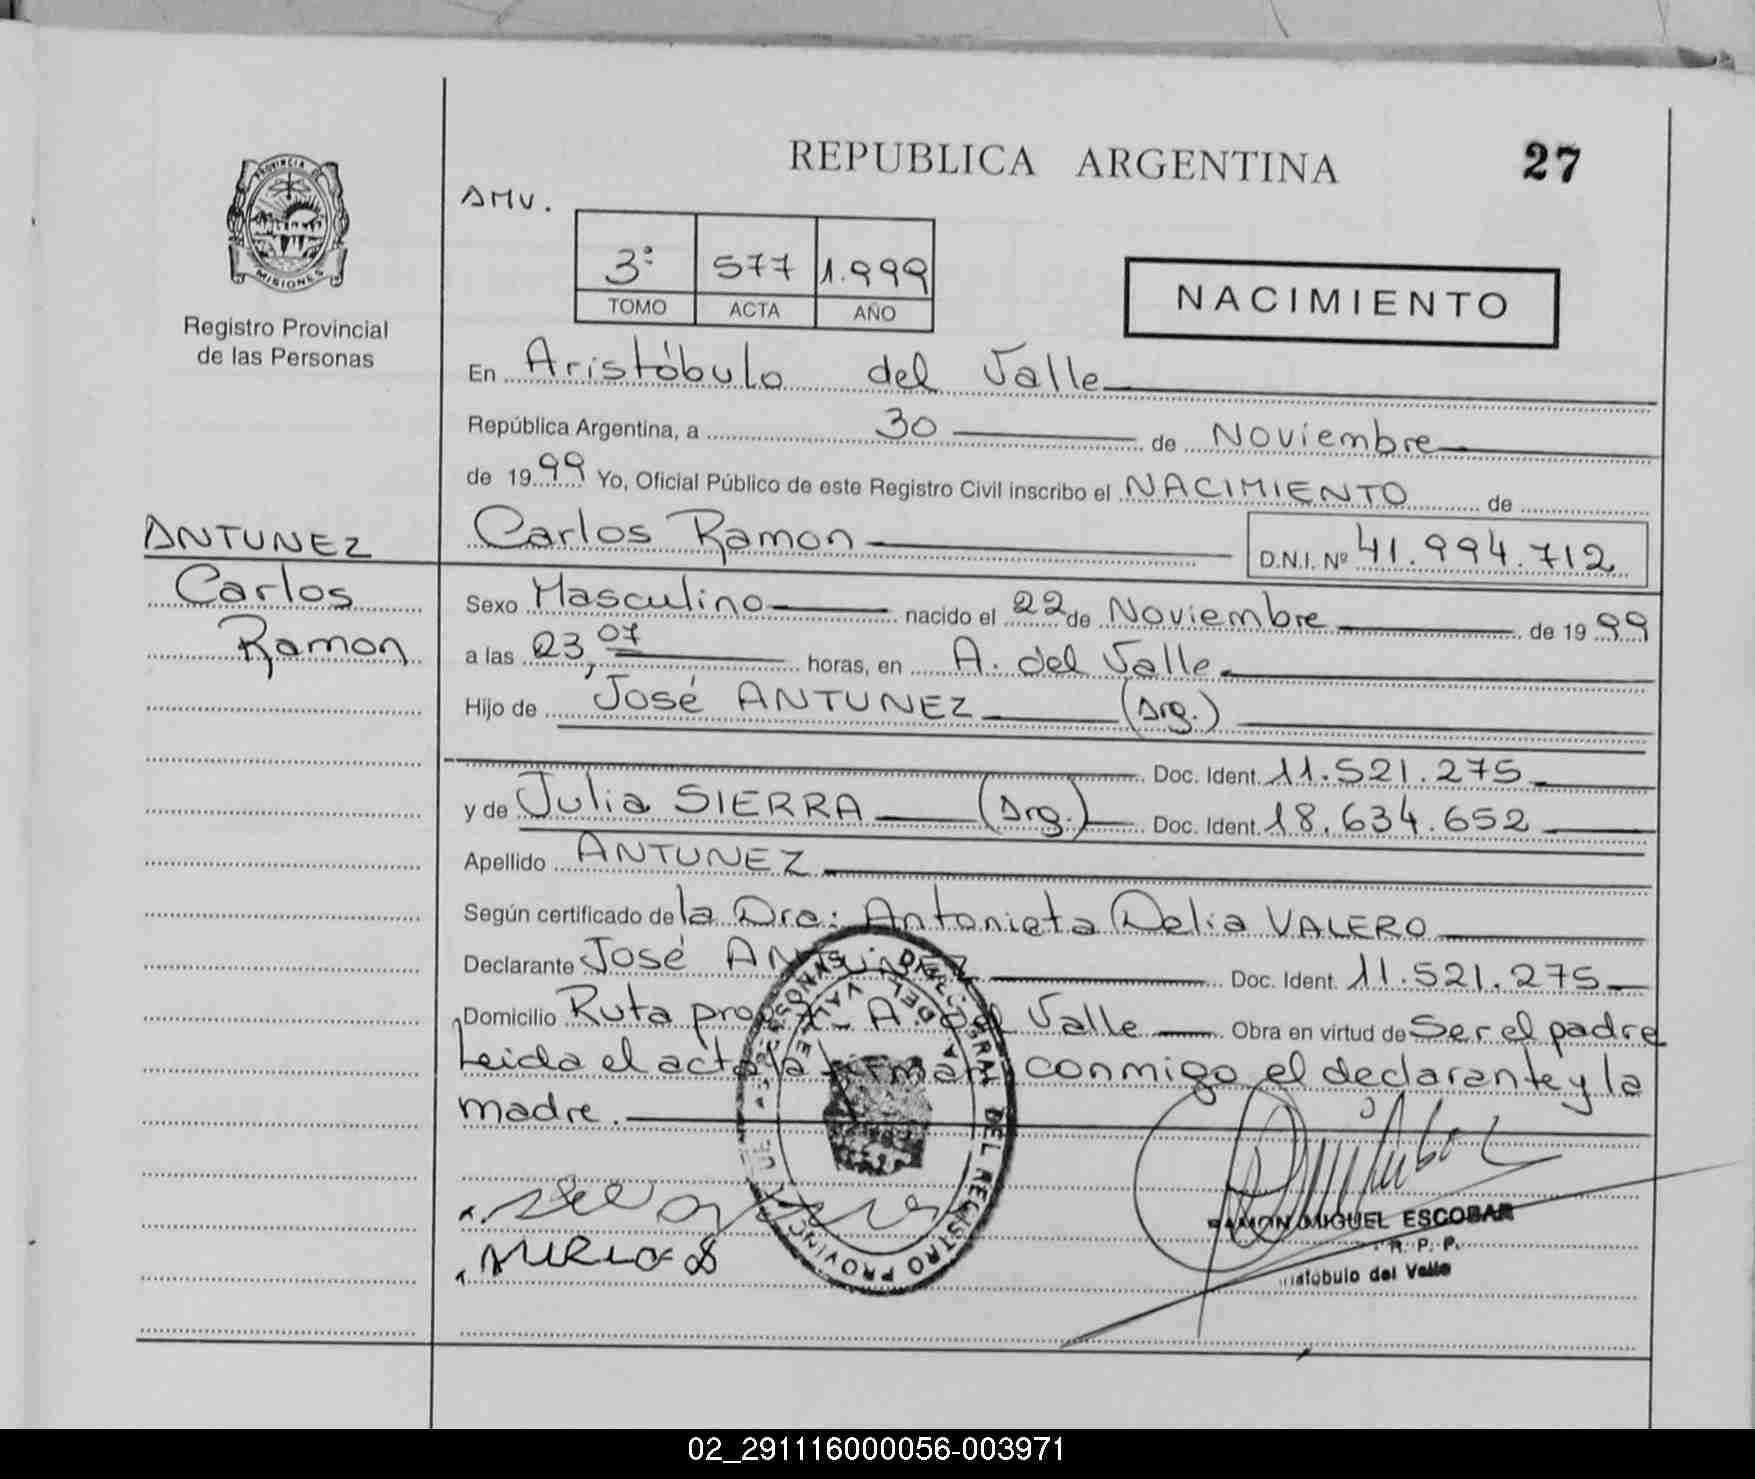 REPUBLICA ARGENTINA
27
AMV.
PROVINCIA DE MISIONES
3º 577 1.999
TOMO ACTA AÑO
NACIMIENTO
Registro Provincial
de las Personas
En Aristóbulo del Valle
República Argentina, a 30 de Noviembre
de 1999 Yo, Oficial Público de este Registro Civil inscribo el NACIMIENTO de
ANTUNEZ
Carlos
Ramon
Carlos Ramon D.N.I. Nº 41.994.712
Sexo Masculino nacido el 22 de Noviembre de 1999
a las 23,07 horas, en A. del Valle
Hijo de José ANTUNEZ (Arg.)
Doc. Ident. 11.521.275
y de Julia SIERRA (Arg.) Doc. Ident. 18.634.652
Apellido ANTUNEZ
Según certificado de la Dra: Antonieta Delia VALERO
Declarante José ANTUNEZ Doc. Ident. 11.521.275
Domicilio Ruta A. del Valle Obra en virtud de Ser el padre
Leida el acta la firman conmigo el declarante y la
madre.
RAMON MIGUEL ESCOBAR
R. P. P.
istobulo del Valle
02_291116000056-003971